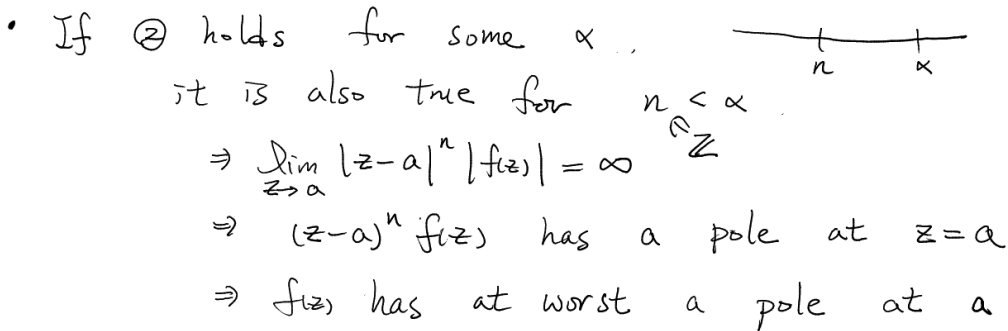 • If ② holds for some α,
n α
it is also true for n < α
∈ ℤ
⇒ lim |z-a|ⁿ |f(z)| = ∞
z→a
⇒ (z-a)ⁿ f(z) has a pole at z=a
⇒ f(z) has at worst a pole at a